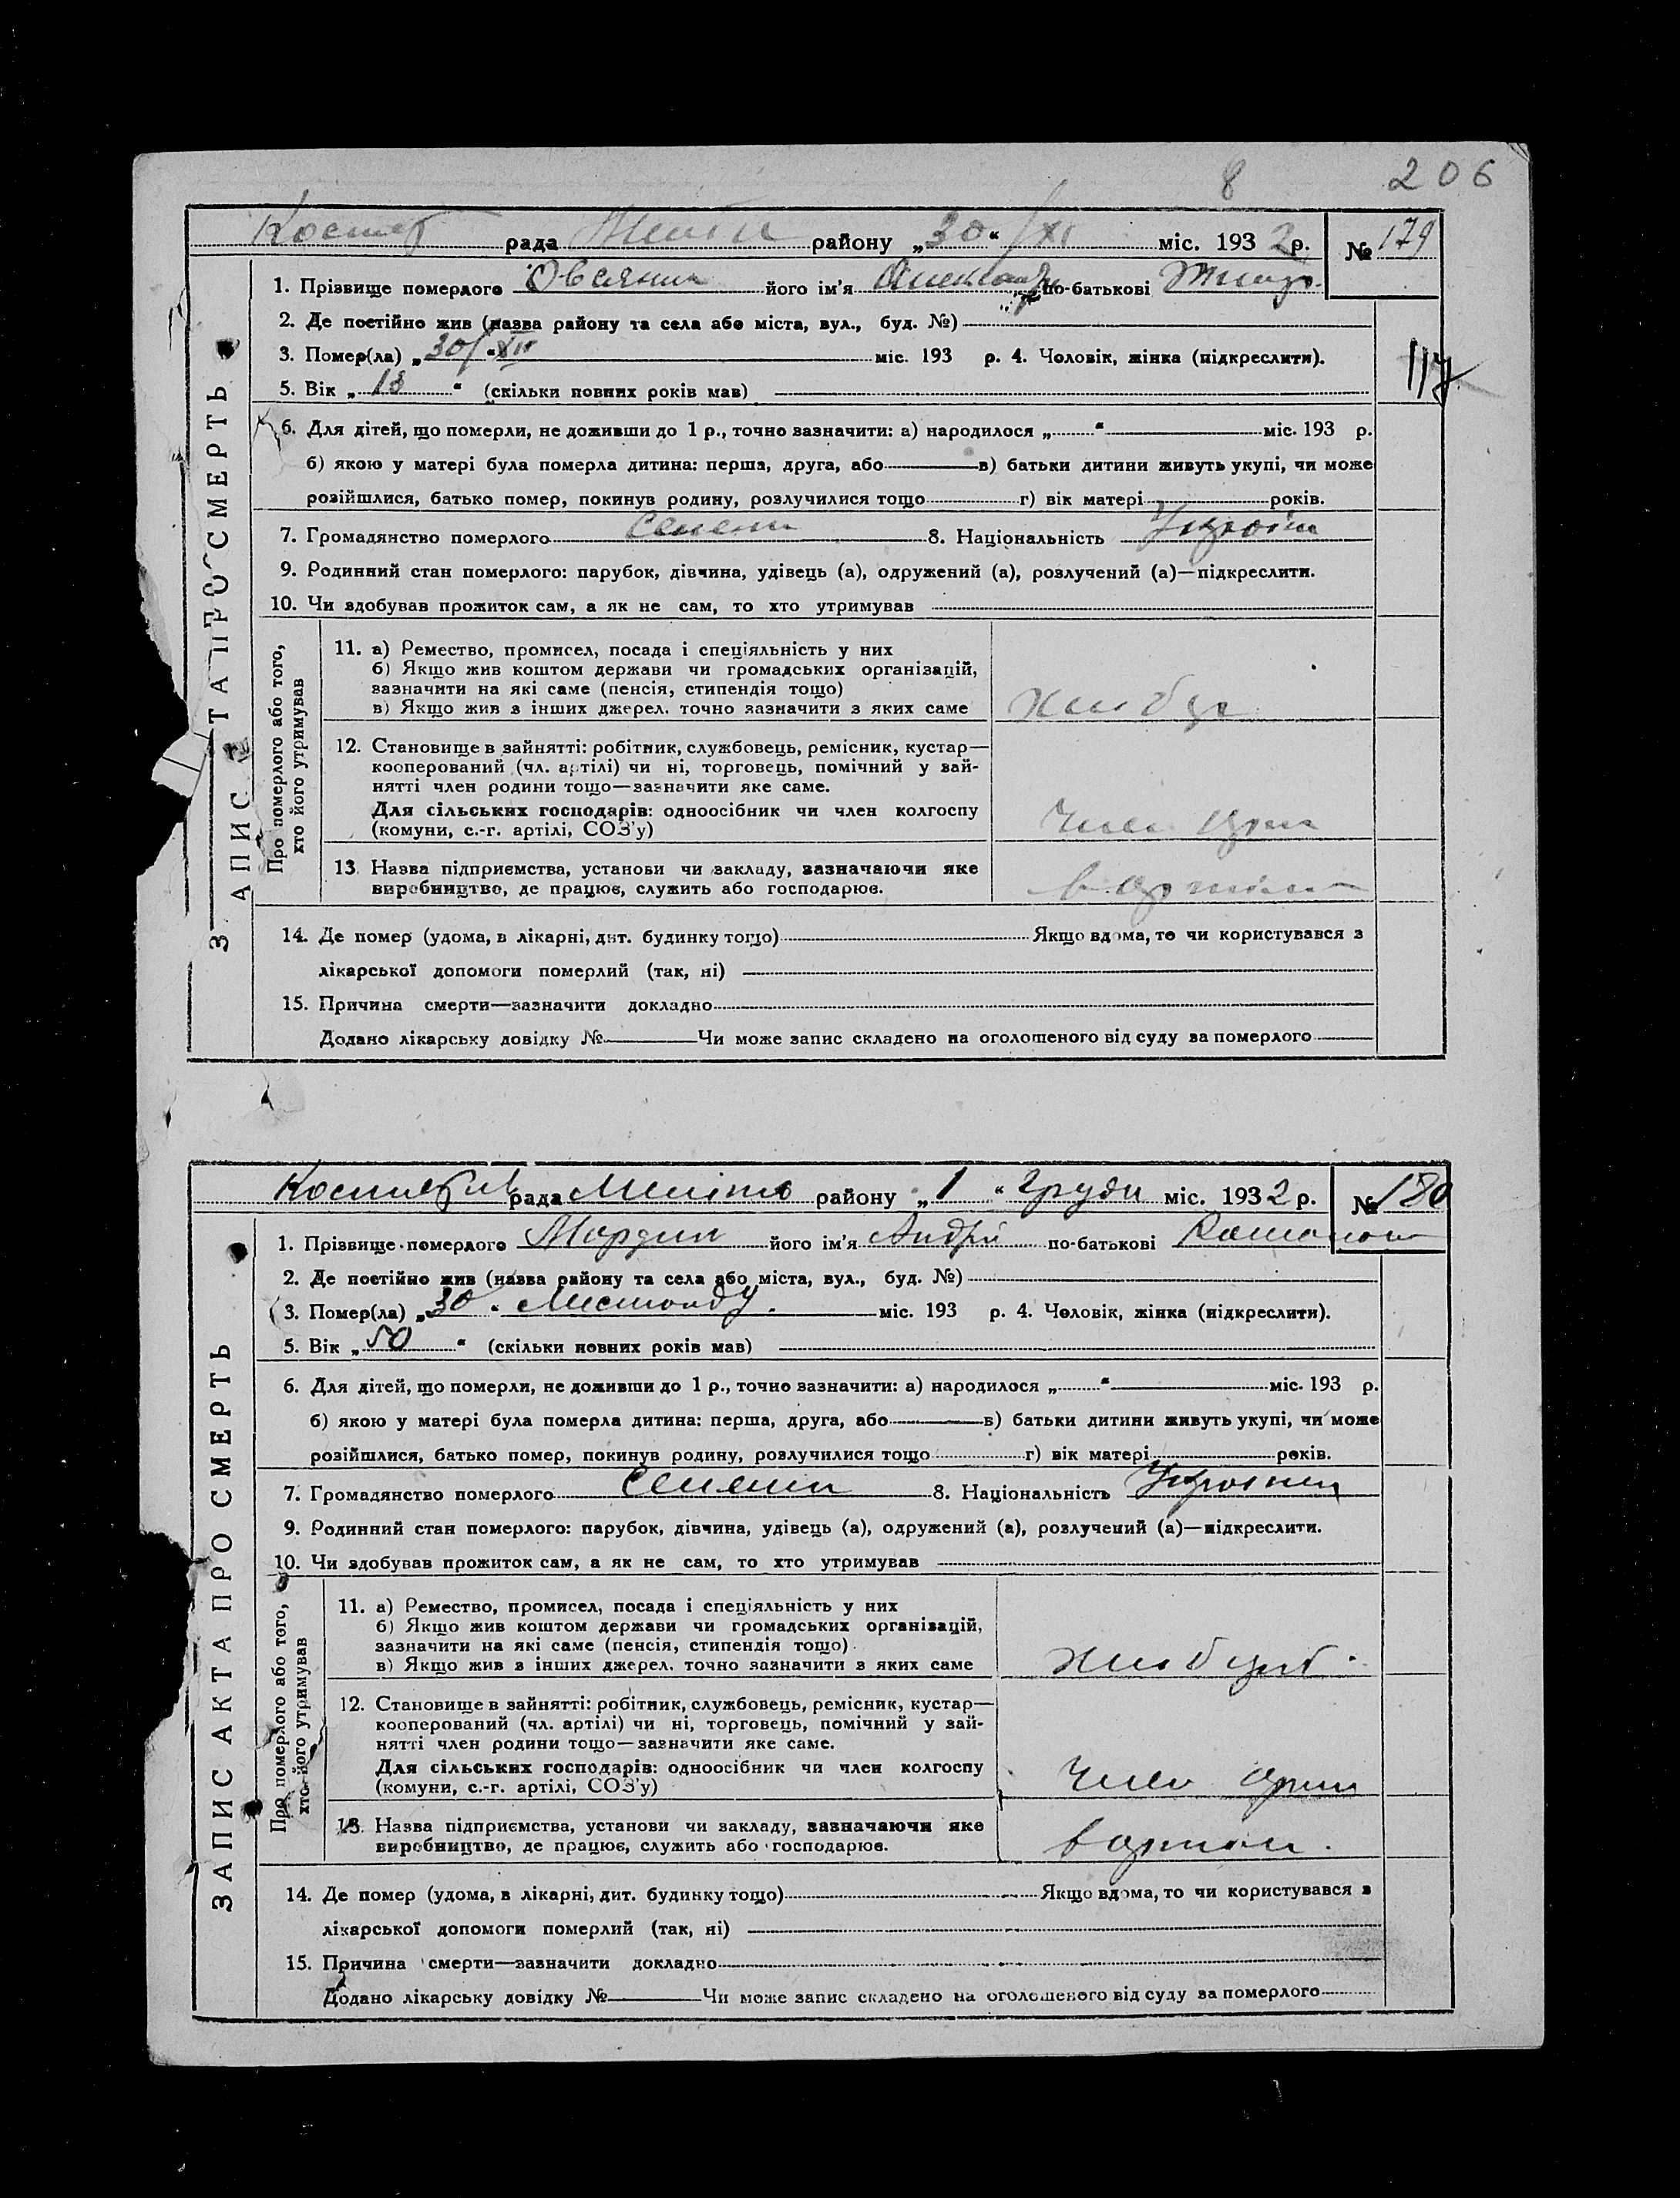 8 206
рада району „30“ /XI міс. 1932 р. № 179
1. Прізвище померлого Овсяник його ім'я Олександр по-батькові
2. Де постійно жив (назва району та села або міста, вул., буд. №)
3. Помер(ла) „30/“ XII міс. 193 р. 4. Чоловік, жінка (підкреслити).
117
5. Вік „18“ (скільки повних років мав)
6. Для дітей, що померли, не доживши до 1 р., точно зазначити: а) народилося „ “ міс. 193 р.
б) якою у матері була померла дитина: перша, друга, або в) батьки дитини живуть укупі, чи може
розійшлися, батько помер, покинув родину, розлучилися тощо г) вік матері років.
7. Громадянство померлого 8. Національність Україн
9. Родинний стан померлого: парубок, дівчина, удівець (а), одружений (а), розлучений (а)—підкреслити.
10. Чи здобував прожиток сам, а як не сам, то хто утримував
ЗАПИС АКТА ПРО СМЕРТЬ
Про померлого або того,
хто його утримував
11. а) Ремество, промисел, посада і спеціяльність у них
б) Якщо жив коштом держави чи громадських організацій,
зазначити на які саме (пенсія, стипендія тощо)
в) Якщо жив з інших джерел, точно зазначити з яких саме
12. Становище в зайнятті: робітник, службовець, ремісник, кустар—
кооперований (чл. артілі) чи ні, торговець, помічний у зай-
нятті член родини тощо—зазначити яке саме.
Для сільських господарів: одноосібник чи член колгоспу
(комуни, с.-г. артілі, СОЗ'у)
Член
13. Назва підприємства, установи чи закладу, зазначаючи яке
виробництво, де працює, служить або господарює.
в артілі
14. Де помер (удома, в лікарні, дит. будинку тощо) Якщо вдома, то чи користувався з
лікарської допомоги померлий (так, ні)
15. Причина смерти—зазначити докладно
Додано лікарську довідку № Чи може запис складено на оголошеного від суду за померлого
рада району „1“ Грудн міс. 1932 р. № 180
1. Прізвище померлого його ім'я Андрій по-батькові
2. Де постійно жив (назва району та села або міста, вул., буд. №)
3. Помер(ла) „30“ Листопаду міс. 193 р. 4. Чоловік, жінка (підкреслити).
5. Вік „50“ (скільки повних років мав)
6. Для дітей, що померли, не доживши до 1 р., точно зазначити: а) народилося „ “ міс. 193 р.
б) якою у матері була померла дитина: перша, друга, або в) батьки дитини живуть укупі, чи може
розійшлися, батько помер, покинув родину, розлучилися тощо г) вік матері років.
7. Громадянство померлого 8. Національність Україн
9. Родинний стан померлого: парубок, дівчина, удівець (а), одружений (а), розлучений (а)—підкреслити.
10. Чи здобував прожиток сам, а як не сам, то хто утримував
ЗАПИС АКТА ПРО СМЕРТЬ
Про померлого або того,
хто його утримував
11. а) Ремество, промисел, посада і спеціяльність у них
б) Якщо жив коштом держави чи громадських організацій,
зазначити на які саме (пенсія, стипендія тощо)
в) Якщо жив з інших джерел, точно зазначити з яких саме
12. Становище в зайнятті: робітник, службовець, ремісник, кустар—
кооперований (чл. артілі) чи ні, торговець, помічний у зай-
нятті член родини тощо—зазначити яке саме.
Для сільських господарів: одноосібник чи член колгоспу
(комуни, с.-г. артілі, СОЗ'у)
Член
13. Назва підприємства, установи чи закладу, зазначаючи яке
виробництво, де працює, служить або господарює.
в артілі.
14. Де помер (удома, в лікарні, дит. будинку тощо) Якщо вдома, то чи користувався з
лікарської допомоги померлий (так, ні)
15. Причина смерти—зазначити докладно
Додано лікарську довідку № Чи може запис складено на оголошеного від суду за померлого